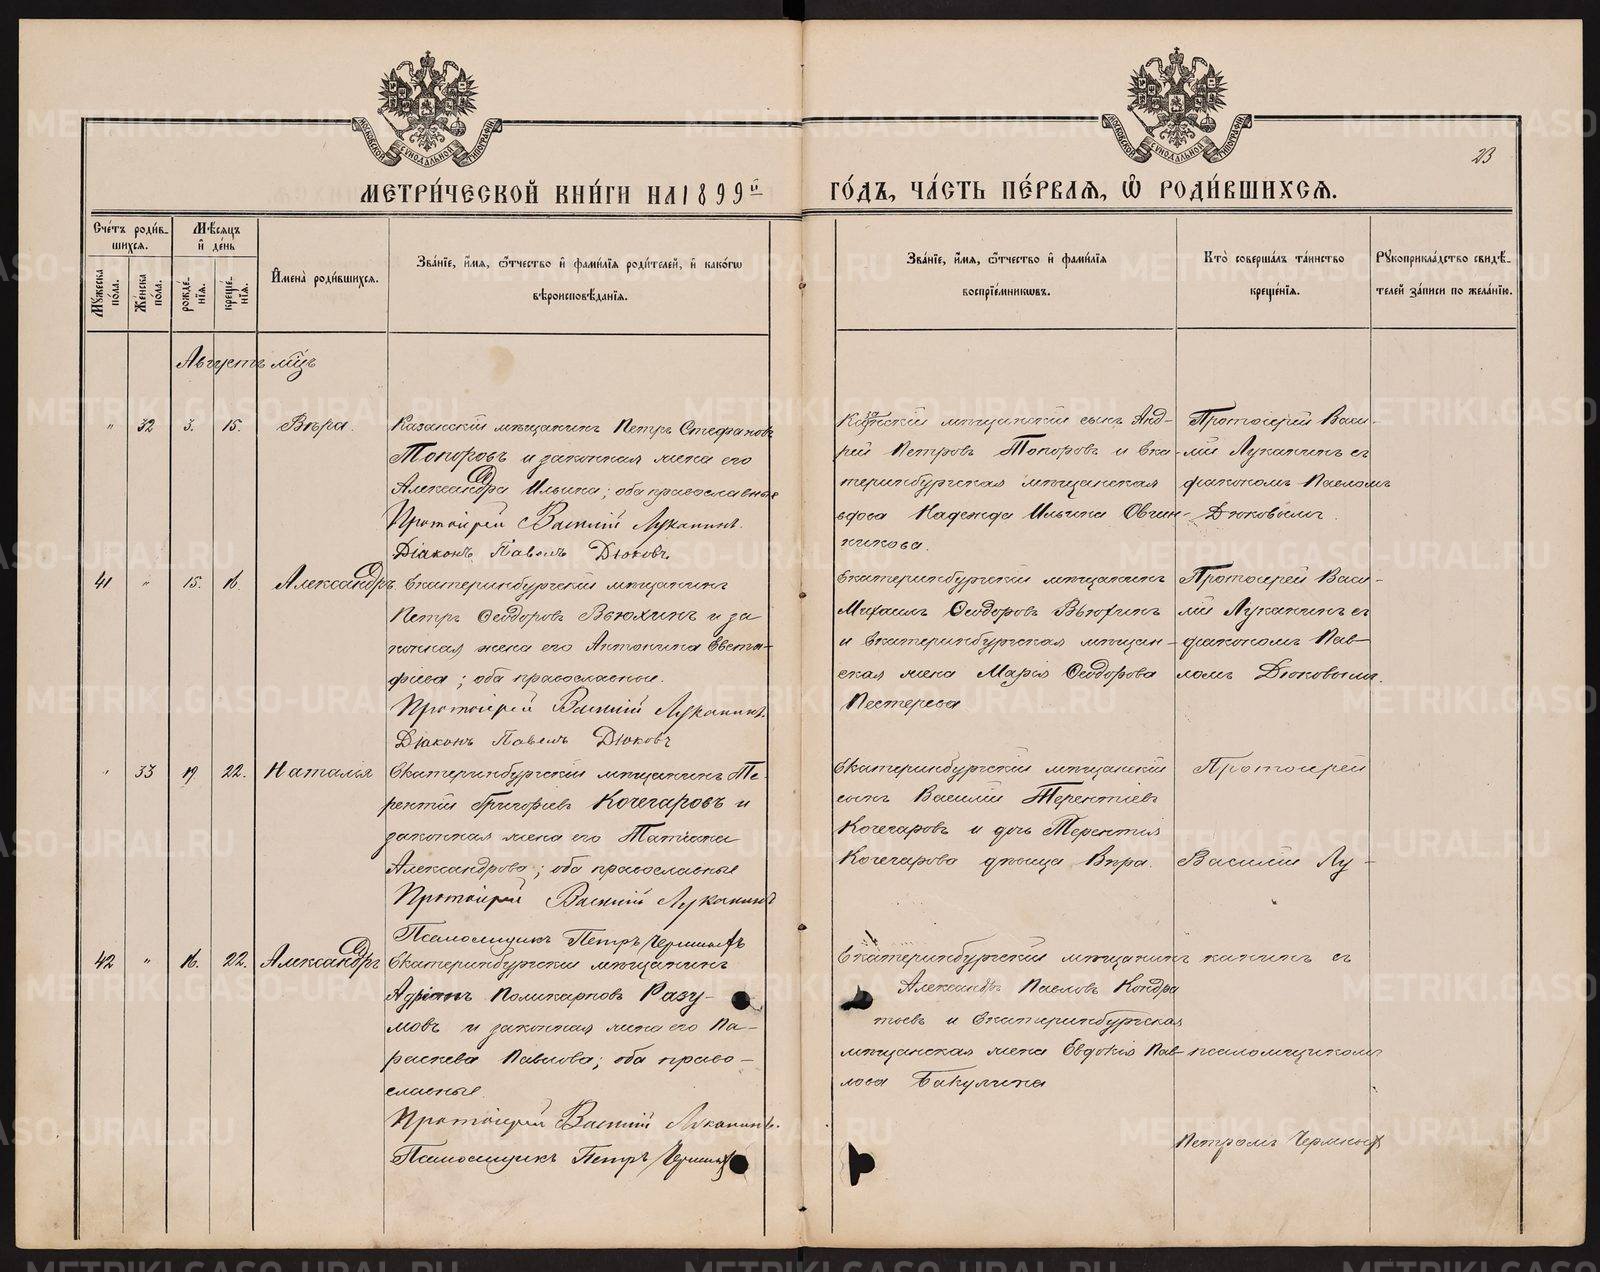 МЕТРИ́ЧЕСКОЙ КНИ́ГИ НА 1899й
ГО́ДЪ, ЧА́СТЬ ПЕ́РВАѦ, Ѡ РОДИ́ВШИХСѦ.
23
МОСКОВСКОЙ СѴНОДАЛЬНОЙ ТИПОГРАФІИ
МОСКОВСКОЙ СѴНОДАЛЬНОЙ ТИПОГРАФІИ
Сче́тъ роди́в-
шихсѧ.
Мꙋжеска по́ла.
Же́нска по́ла.
Мѣ́сѧцъ
и де́нь
рожде́-
нїѧ.
креще́-
нїѧ.
И҆мена̀ роди́вшихсѧ.
Зва́нїе, и҆́мѧ, ѻ҆́тчество и҆ фами́лїѧ роди́телей, и҆ како́гѡ
вѣроисповѣ́данїѧ.
Зва́нїе, и҆́мѧ, ѻ҆́тчество и҆ фами́лїѧ
воспрїе́мникѡвъ.
Кто̀ соверша́лъ та́инство
креще́нїѧ.
Рꙋкоприкла́дство свидѣ́-
телей за́писи по жела́нїю.
Августъ мцъ
" 32 3. 15. Вѣра.
Казанскій мѣщанинъ Петръ Стефановъ
Топоровъ и законная жена его
Александра Ильина; оба православные
Протоіерей Василій Луканинъ.
Діаконъ Павелъ Дюковъ
Казанскій мѣщанскій сынъ Анд-
рей Петровъ Топоровъ и Ека-
теринбургская мѣщанская
вдова Надежда Ильина Овчин-
никова.
Протоіерей Васи-
лій Луканинъ съ
діакономъ Павломъ
Дюковымъ.
41 " 15. 16. Александръ.
Екатеринбургскій мѣщанинъ
Петръ Ѳеодоровъ Вьюхинъ и за
конная жена его Антонина Евста-
фіева; оба православные.
Протоіерей Василій Луканинъ.
Діаконъ Павелъ Дюковъ
Екатеринбургскій мѣщанинъ
Михаилъ Ѳеодоровъ Вьюхинъ
и Екатеринбургская мѣщан-
ская жена Марія Ѳеодорова
Пестерева
Протоіерей Васи-
лій Луканинъ съ
діакономъ Пав-
ломъ Дюковымъ.
" 33 19 22. Наталья
Екатеринбургскій мѣщанинъ Те-
рентій Григорьевъ Кочегаровъ и
законная жена его Татіана
Александрова; оба православные
Протоіерей Василій Луканинъ
Псаломщикъ Петръ Черныхъ
Екатеринбургскій мѣщанскій
сынъ Василій Терентіевъ
Кочегаровъ и дочь Терентія
Кочегарова дѣвица Вѣра.
Протоіерей
Василій Лу-
42 " 16. 22. Александръ
Екатеринбургскій мѣщанинъ
Адріанъ Поликарповъ Разу-
мовъ и законная жена его Па-
раскева Павлова; оба право-
славные.
Протоіерей Василій Луканинъ.
Псаломщикъ Петръ Черныхъ
Екатеринбургскій мѣщанинъ
Александръ Павловъ Кондра
тьевъ и Екатеринбургская
мѣщанская жена Евдокія Пав-
лова Бакулина
канинъ съ
псаломщикомъ
Петромъ Черныхъ
METRIKI.GASO-URAL.RU